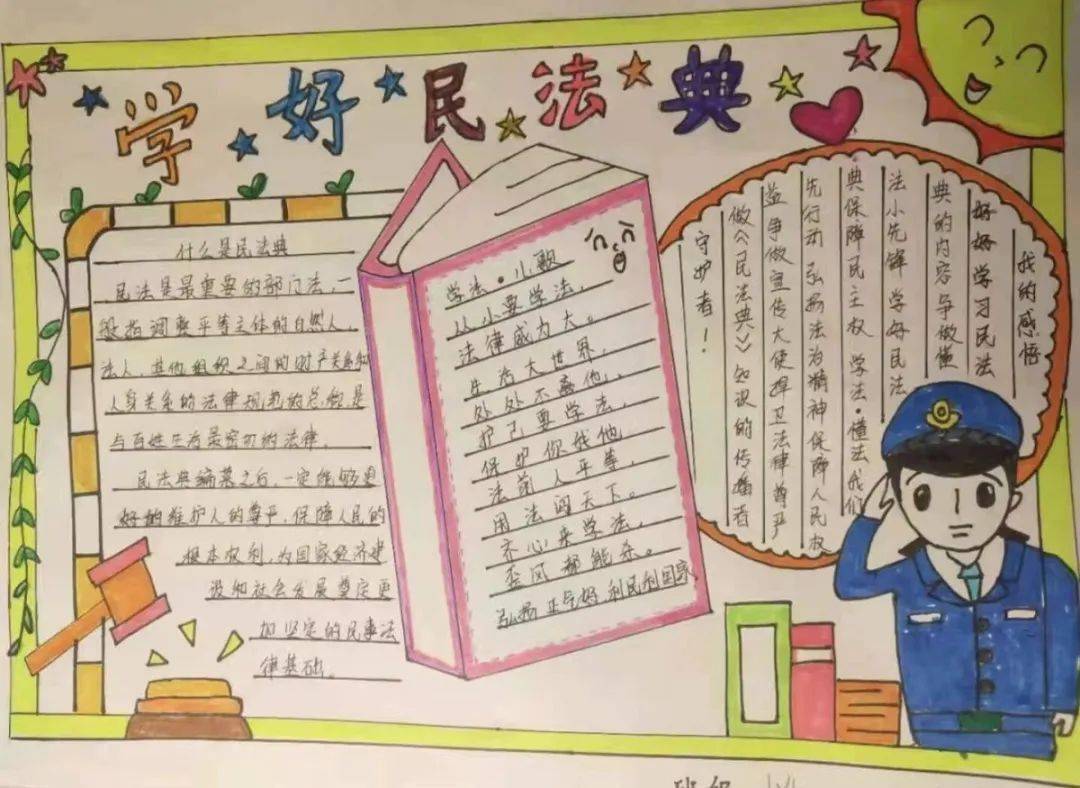 学好民法典
什么是民法典
民法是最重要的部门法,一
般指调整平等主体的自然人、
法人、其他组织之间的财产关系和
人身关系的法律规范的总称,是
与百姓生活最密切的法律。
民法典编纂之后,一定能够更
好的维护人的尊严,保障人民的
根本权利,为国家经济建
设和社会发展奠定更
加坚定的民事法
律基础。
学法·小歌
从小要学法,
法律威力大。
生活大世界,
处处不离他,
护己要学法,
保护你我他
法前人平等,
用法闯天下。
齐心来学法,
歪风都能杀。
弘扬正气好利民利国家
我的感悟
好好学习民法
典的内容争做懂
法小先锋 学好民法
典保障民主权 学法·懂法我们
先行动 弘扬法为精神保障人民权
益争做宣传大使捍卫法律尊严
做《民法典》知识的传播者
守护者!